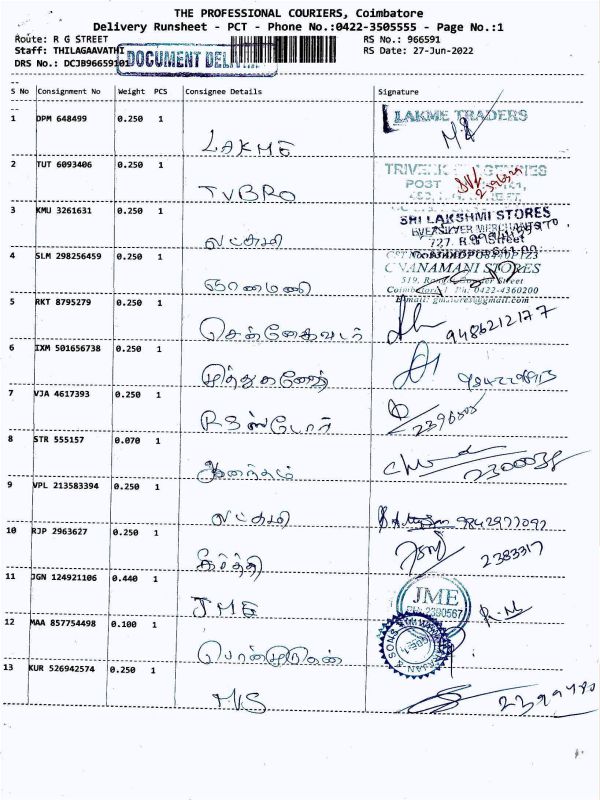 THE PROFESSIONAL COURIERS, Coimbatore
Delivery Runsheet - PCT - Phone No.:0422-3505555 - Page No.:1
Route: R G STREET RS No.: 966591
Staff: THILAGAAVATHI RS Date: 27-Jun-2022
DRS No.: DCJB96659101
DOCUMENT
S No Consignment No Weight PCS Consignee Details Signature
1 DPM 648499 0.250 1 LAKME LAKME TRADERS
2 TUT 6093406 0.250 1 TVBRO
POST
3 KMU 3261631 0.250 1 லட்சுமி SRI LAKSHMI STORES
EVERSILVER MERCHANTS
727, R.G. Street
4 SLM 298256459 0.250 1 ஞானமணி GNANAMANI STORES
Ph: 0422-4360200
5 RKT 8795279 0.250 1 9486212177
6 IXM 501656738 0.250 1
7 VJA 4617393 0.250 1 RS ஸ்டோர்
8 STR 555157 0.070 1 ஆனந்தம் 2300038
9 VPL 213583394 0.250 1 லட்சுமி 9842977092
10 RJP 2963627 0.250 1 கீர்த்தி 2383317
11 JGN 124921106 0.440 1 JME JME
12 MAA 857754498 0.100 1 பொன்முருகன்
13 KUR 526942574 0.250 1 M/S 2399480